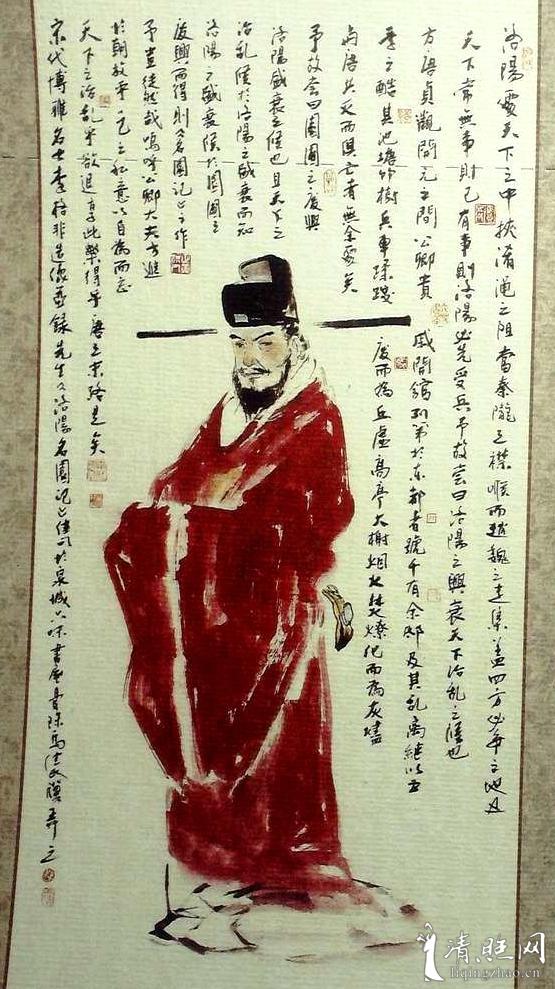 洛陽處天下之中挾淆澠之阻當秦隴之襟喉而趙魏之走集蓋四方必爭之地也
天下常無事則已有事則洛陽必先受兵予故嘗曰洛陽之興衰天下治亂之候也
方唐貞觀開元之間公卿貴戚開館列第於東都者號千有余邸及其亂離繼以五
季之酷其池塘竹樹兵車蹂踐廢而為丘虛高亭大榭烟火焚燎化而為灰燼
与唐共滅而俱亡者無余處矣
予故嘗曰園圃之廢興
洛陽盛衰之候也且天下之
治亂候於洛陽之盛衰而知
洛陽之盛衰候於園圃之
廢興而得則名園記之作
予豈徒然哉嗚呼公卿大夫方進
於朝放乎一己之私意以自為而忘
天下之治乱乎欲退享此樂得乎唐之末路是矣
宋代博雅名士李格非造像並錄先生之洛陽名園記之佳句於泉城
清旺网
liqingzhao.cn